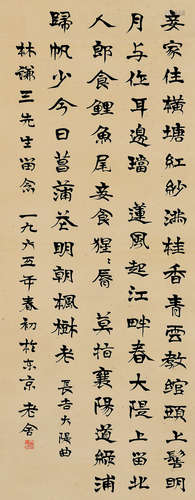 妾家住橫塘紅紗滿桂香青雲教綰頭上髻明
月与作耳邊璫 蓮風起江畔春大隄上留北
人郎食鯉魚尾妾食猩〻唇 莫指襄陽道綠浦
歸帆少今日菖蒲花明朝楓樹老 長吉大隄曲
林謙三先生留念 一九六五年春初於东京 老舍